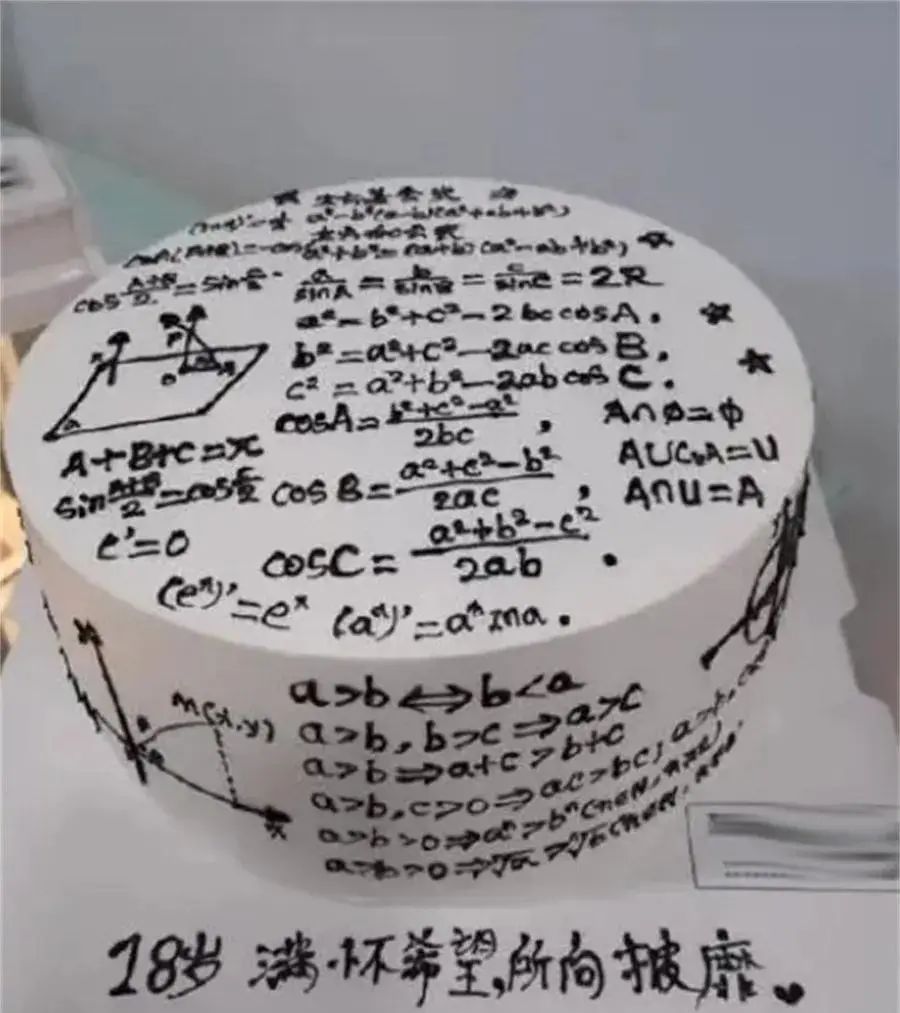 a³-b³=(a-b)(a²+ab+b²)
a³+b³=(a+b)(a²-ab+b²)
cos(A+B)/2=sin C/2
a/sinA=b/sinB=c/sinC=2R
a²-b²+c²-2bccosA.
b²=a²+c²-2accosB.
c²=a²+b²-2abcosC.
cosA=(b²+c²-a²)/2bc,
A∩ϕ=ϕ
A+B+C=π
sin(A+B)/2=cos C/2
cosB=(a²+c²-b²)/2ac,
A∪CᵤA=U
A∩U=A
c'=0
cosC=(a²+b²-c²)/2ab.
(eˣ)'=eˣ
(aˣ)'=aˣlna.
a>b⇔b<a
M(x,y)
a>b,b>c⇒a>c
a>b⇒a+c>b+c
a>b,c>0⇒ac>bc;
a>b>0⇒aⁿ>bⁿ
a>b>0⇒ⁿ√a>ⁿ√b
18岁 满怀希望,所向披靡.